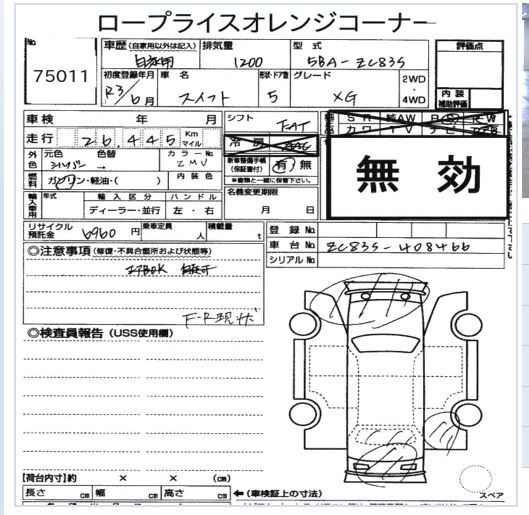 ロープライスオレンジコーナー
No.
75011
車歴 (自家用以外は記入) 自家用
排気量 1200
型式 5BA-ZC83S
評価点
初度登録年月 R3/6月
車名 スイフト
形状・ドア数 5
グレード XG
2WD
4WD
内装
補助評価
車検 年 月
シフト FAT
走行 26,445 Km マイル
冷房
外色 元色 シルバー 色替 →
カラーNo. ZMV
新車整備手帳 (保証書付) 有 無
*書類と一緒に保管下さい。
無効
燃料 ガソリン・軽油・( )
内装色
名義変更期限
月 日
輸入車用 年式
輸入区分 ディーラー・並行
ハンドル 左・右
リサイクル預託金 6960 円
乗車定員 人
積載量 t
登録No.
車台No. ZC83S-408466
シリアルNo.
◎注意事項 (修復・不具合箇所および状態等)
F・R現状
◎検査員報告 (USS使用欄)
【荷台内寸】約 × × (cm)
長さ cm 幅 cm 高さ cm
←(車検証上の寸法)
スペア